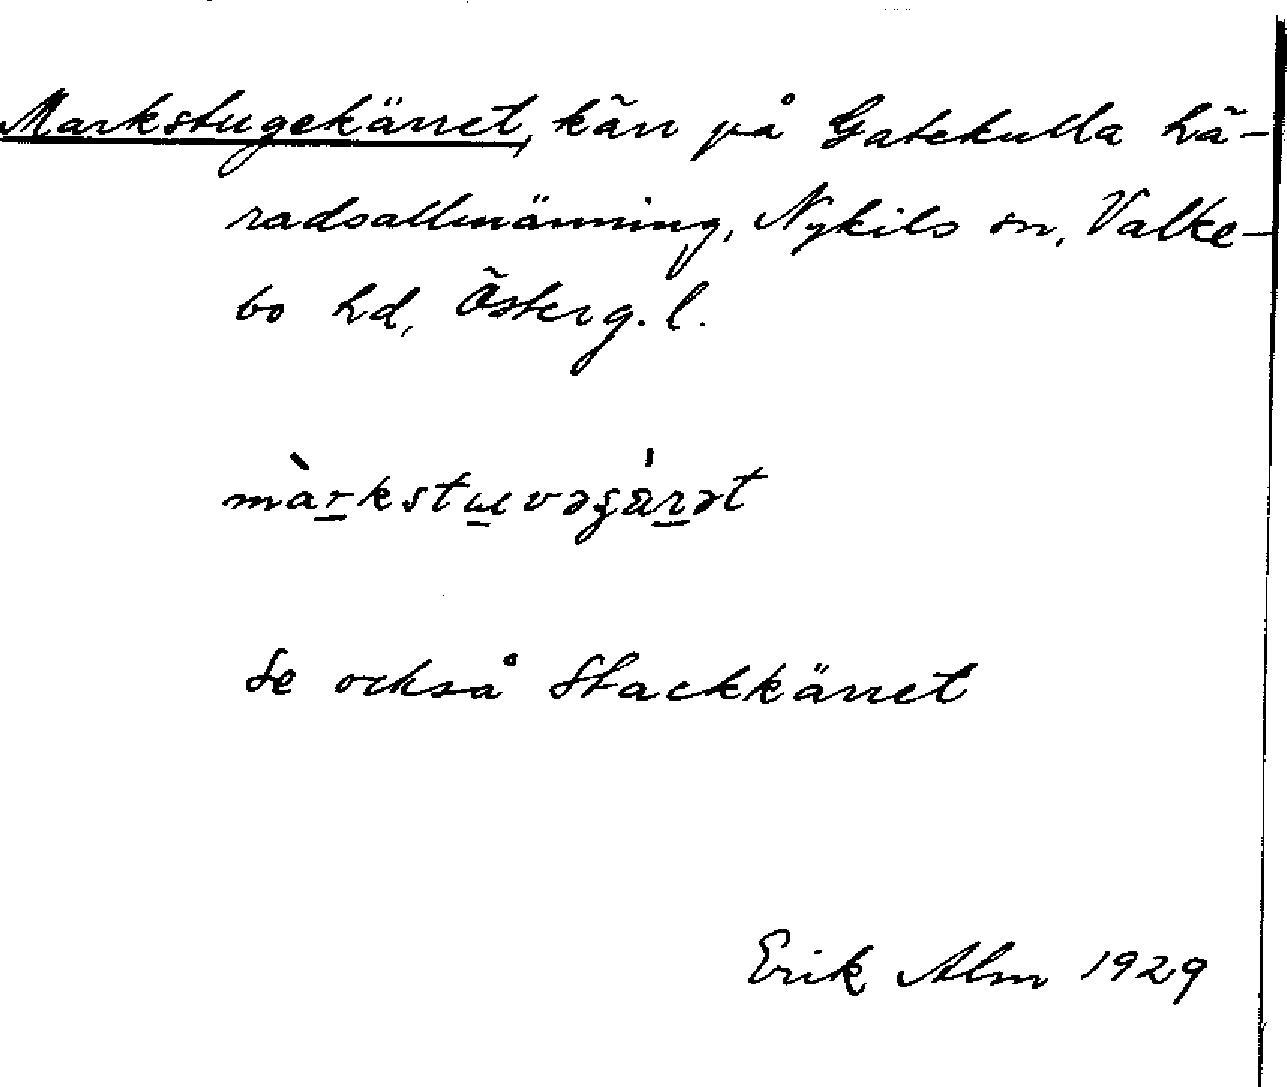 Markstugekärret, kärr på Gatekulla hä-
radsallmänning, Nykils sn, Valke-
bo hd, Österg. l.
màrkstuvəgä́rət
Se också Stackkärret
Erik Alm 1929